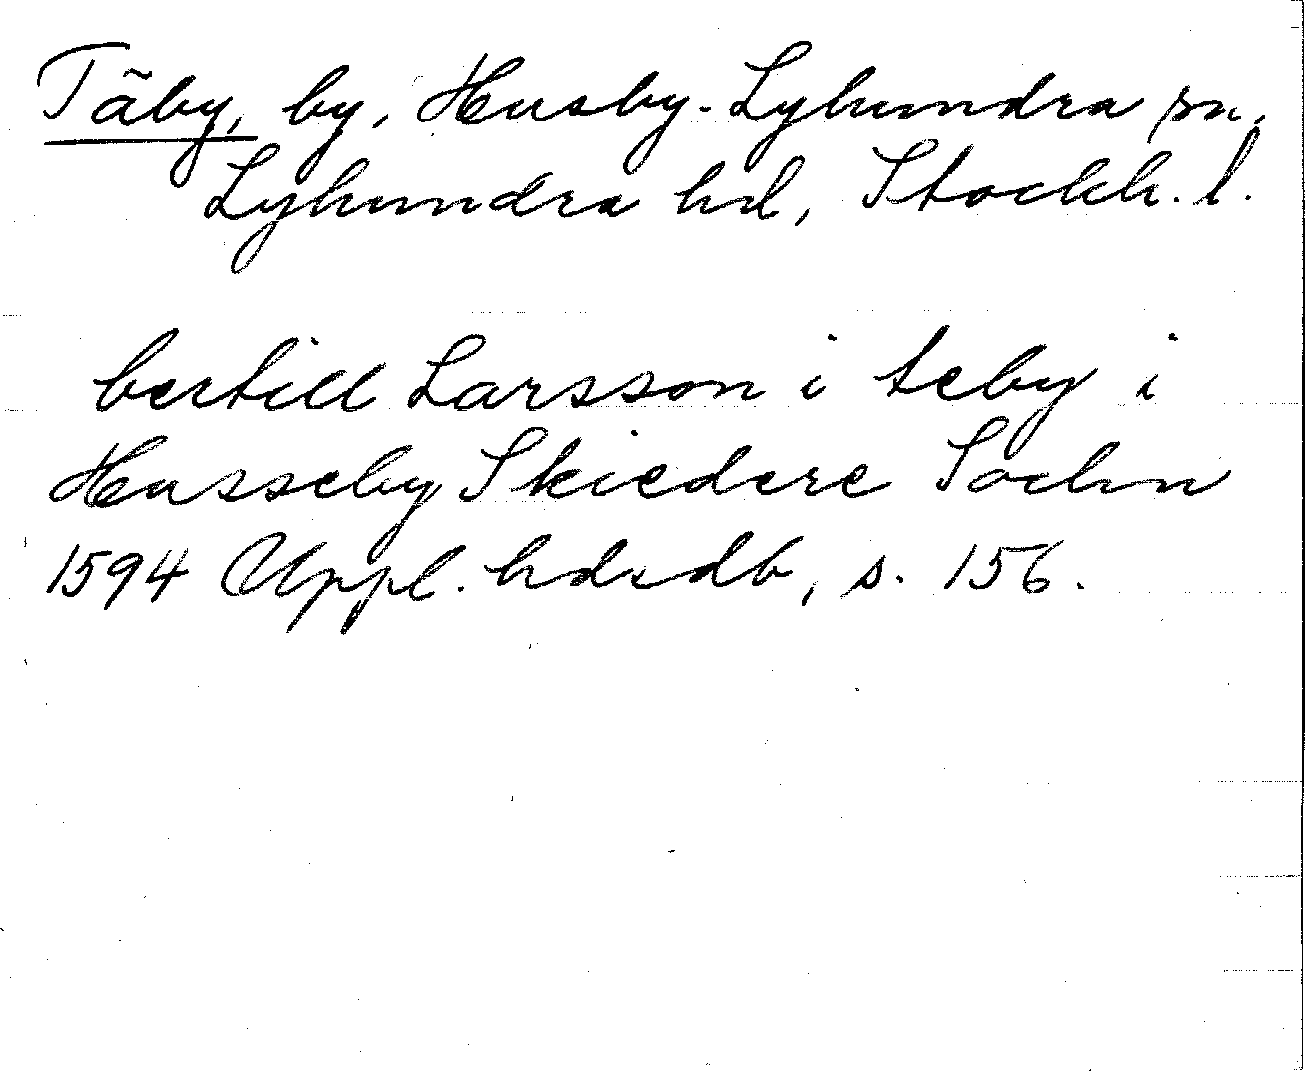 Täby, by, Husby-Lyhundra sn,
Lyhundra hd, Stockh. l.
bertill Larsson i teby i
Husseby Skiedere Sochn
1594 Uppl. hdsdb, s. 156.